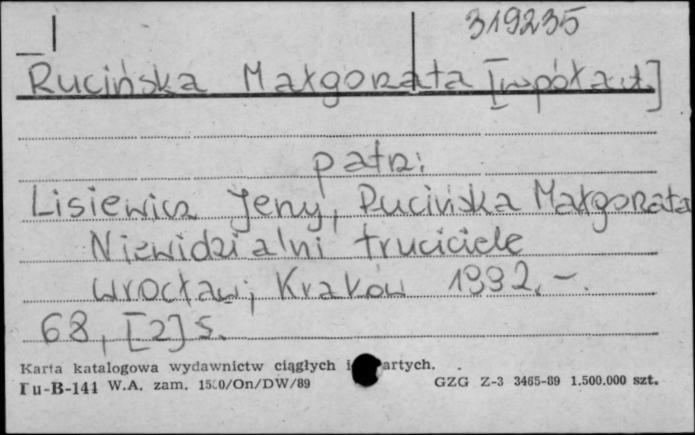 319235
Rucińska Małgorzata [współaut.]
patrz:
Lisiewicz Jerzy, Rucińska Małgorzata
Niewidzialni truciciele
Wrocław; Kraków 1992.-.
68, [2] s.
Karta katalogowa wydawnictw ciągłych i artych.
Pu-B-141 W.A. zam. 1500/On/DW/89 GZG Z-3 3465-89 1.500.000 szt.